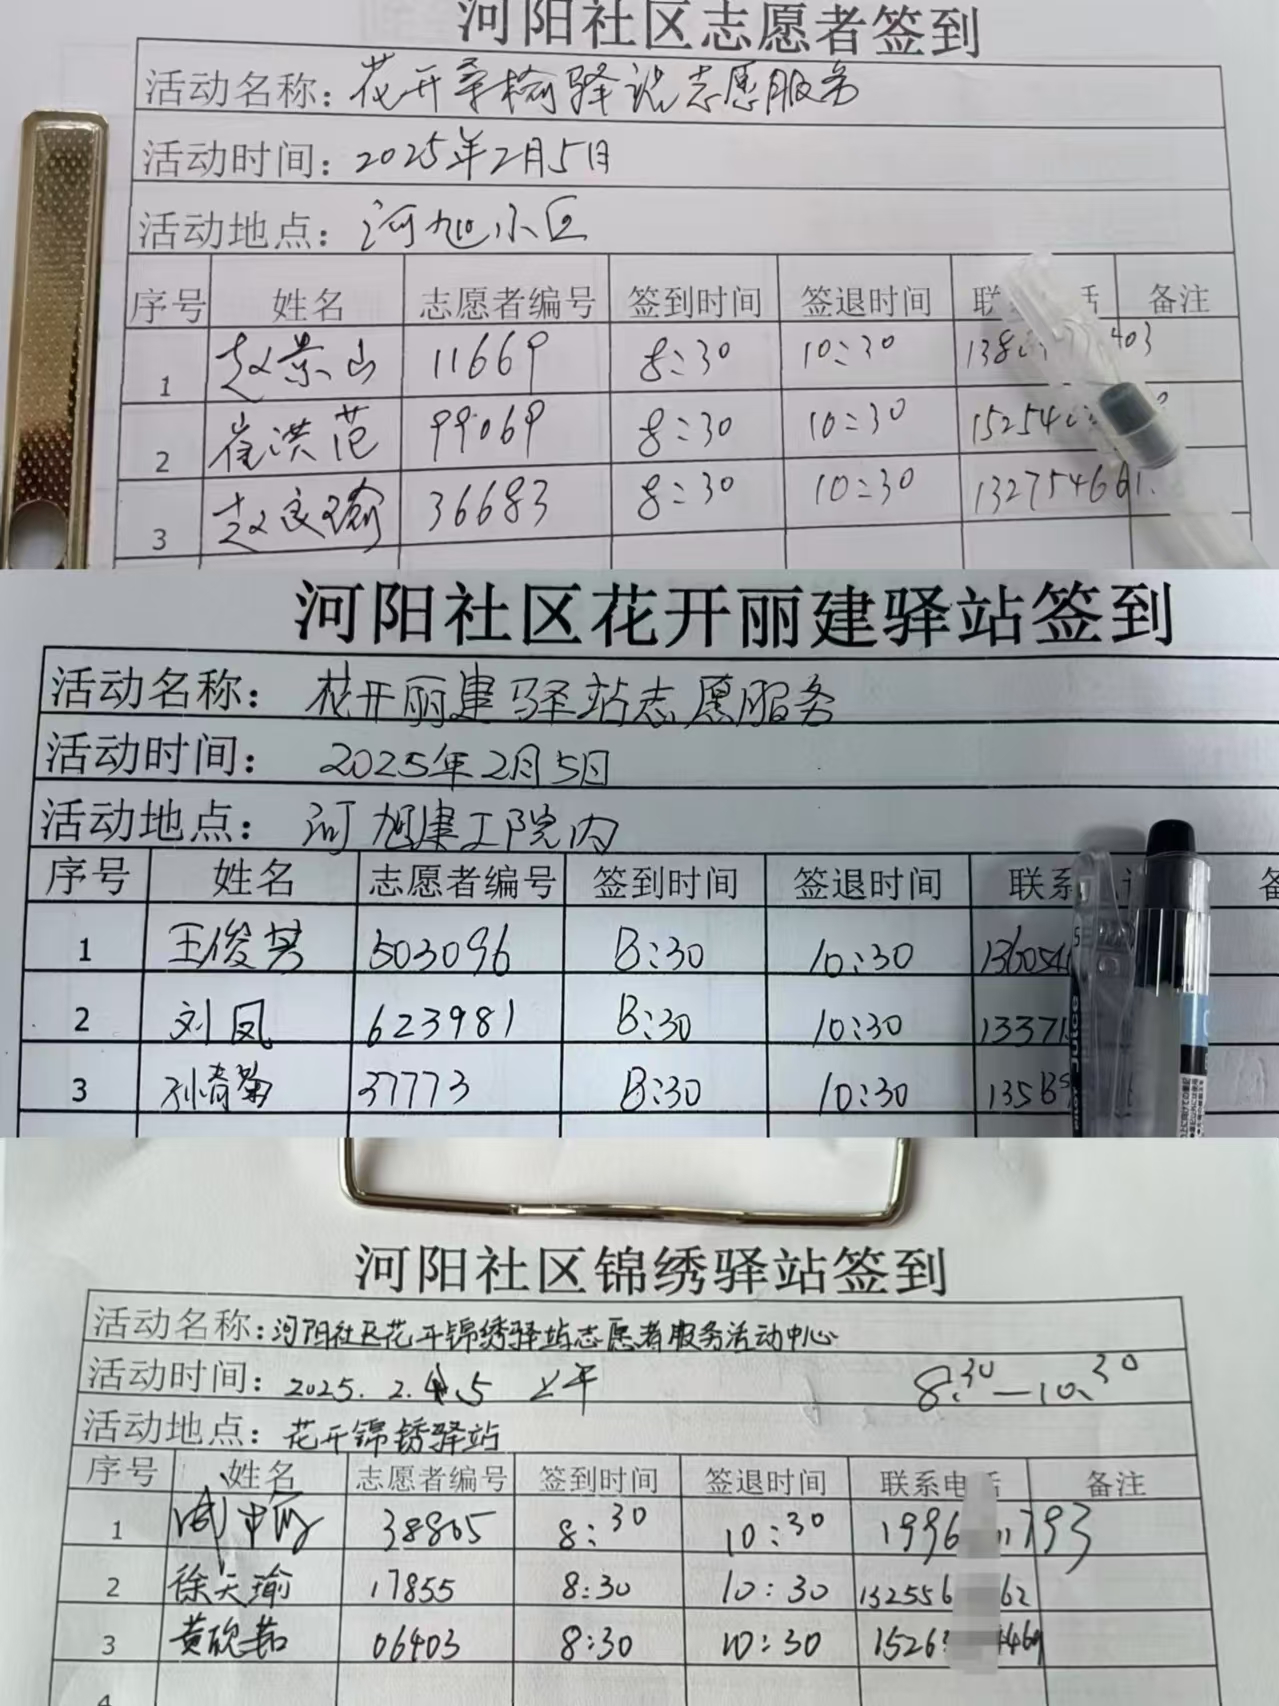 河阳社区志愿者签到
活动名称：花开桑榆驿站志愿服务
活动时间：2025年2月5日
活动地点：河旭小区
序号 姓名 志愿者编号 签到时间 签退时间 联 话 备注
1 赵景山 11669 8:30 10:30 138 403
2 崔洪范 99069 8:30 10:30 15254
3 赵良瑜 36683 8:30 10:30 132754661
河阳社区花开丽建驿站签到
活动名称：花开丽建驿站志愿服务
活动时间：2025年2月5日
活动地点：河旭建工院内
序号 姓名 志愿者编号 签到时间 签退时间 联系
1 王俊芳 503096 8:30 10:30 136054
2 刘凤 623981 8:30 10:30 13371
3 孙奇菊 37773 8:30 10:30 1358
河阳社区锦绣驿站签到
活动名称：河阳社区花开锦绣驿站志愿者服务活动中心
活动时间：2025.2.5 上午 8:30—10:30
活动地点：花开锦绣驿站
序号 姓名 志愿者编号 签到时间 签退时间 联系电话 备注
1 38805 8:30 10:30 1996 1793
2 徐天瑜 17855 8:30 10:30 132556 62
3 黄砚茹 06403 8:30 10:30 1526 4469
4